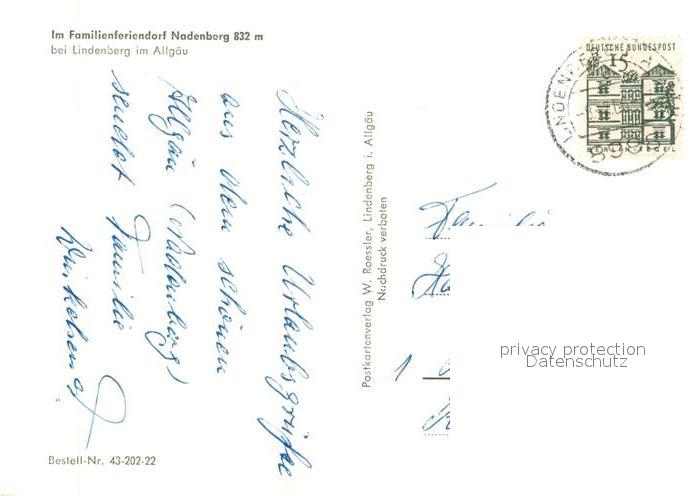 Im Familienferiendorf Nadenberg 832 m
bei Lindenberg im Allgäu
Herzliche Urlaubsgrüße
aus dem schönen
Allgäu (Nadenberg)
sendet Familie
Bestell-Nr. 43-202-22
Postkartenverlag W. Roessler, Lindenberg i. Allgäu
Nachdruck verboten
DEUTSCHE BUNDESPOST
15
BERLIN-TEGEL
8998
Familie
1
privacy protection
Datenschutz